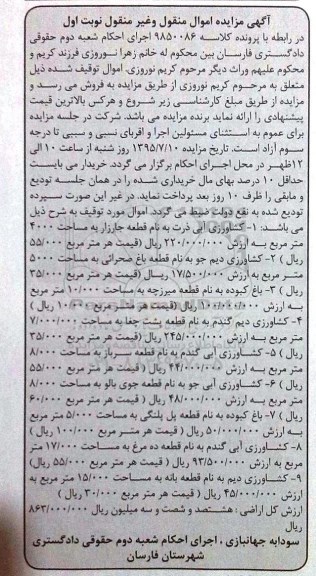 آگهی مزایده اموال منقول وغیر منقول نوبت اول
در رابطه با پرونده کلاسه ۹۸۵۰۰۸۶ اجرای احکام شعبه دوم حقوقی
دادگستری فارسان بین محکوم له خانم زهرا نوروزی فرزند کریم و
محکوم علیهم وراث دیگر مرحوم کریم نوروزی، اموال توقیف شده ذیل
متعلق به مرحوم کریم نوروزی از طریق مزایده به فروش می رسد و
مزایده از طریق مبلغ کارشناسی زیر شروع و هرکس بالاترین قیمت
پیشنهادی را ارائه نماید برنده مزایده می باشد. شرکت در جلسه مزایده
برای عموم به استثنای مسئولین اجرا و اقربای نسبی و سببی تا درجه
سوم آزاد است. تاریخ مزایده ۱۳۹۵/۷/۱۰ روز شنبه از ساعت ۱۰ الی
۱۲ظهر در محل اجرای احکام برگزار می گردد. خریدار می بایست
حداقل ۱۰ درصد بهای مال خریداری شده را در همان جلسه تودیع
و مابقی را ظرف ۱۰ روز بعد پرداخت نماید. در غیر این صورت سپرده
تودیع شده به نفع دولت ضبط می گردد. اموال مورد توقیف به شرح ذیل
می باشند: ۱-کشاورزی آبی ذرت به نام قطعه جارزار به مساحت ۴۰۰۰
متر مربع به ارزش ۲۲۰/۰۰۰/۰۰۰ ریال (قیمت هر متر مربع ۵۵/۰۰۰
ریال ) ۲- کشاورزی دیم جو به نام قطعه باغ صحرائی به مساحت ۵۰۰۰
متر مربع به ارزش ۱۷/۵۰۰/۰۰۰ ریال (قیمت هر متر مربع ۳۵/۰۰۰
ریال ) ۳- باغ کبوده به نام قطعه میرزچه به مساحت ۱۰/۰۰۰ متر مربع
به ارزش ۱۰۰/۰۰۰/۰۰۰ ریال (قیمت هر متر مربع ۱۰/۰۰۰ ریال )
۴- کشاورزی دیم گندم به نام قطعه پشت چغا به مساحت ۷/۰۰۰
متر مربع به ارزش ۲۴۵/۰۰۰/۰۰۰ ریال (قیمت هر متر مربع ۳۵/۰۰۰
ریال ) ۵- کشاورزی آبی گندم به نام قطعه سرباز به مساحت ۸/۰۰۰
متر مربع به ارزش ۴۴/۰۰۰/۰۰۰ ریال (قیمت هر متر مربع ۵۵/۰۰۰
ریال ) ۶- کشاورزی آبی جو به نام قطعه جوی بالو به مساحت ۸/۰۰۰
متر مربع به ارزش ۴۸/۰۰۰/۰۰۰ ریال ( قیمت هر متر مربع ۶۰/۰۰۰
ریال ) ۷- باغ کبوده به نام قطعه پل پلنگی به مساحت ۵/۰۰۰ متر مربع
به ارزش ۵۰/۰۰۰/۰۰۰ ریال ( قیمت هر متر مربع ۱۰۰/۰۰۰ ریال )
۸- کشاورزی آبی گندم به نام قطعه ده مرغ به مساحت ۱۷/۰۰۰ متر
مربع به ارزش ۹۳/۵۰۰/۰۰۰ ریال ( قیمت هر متر مربع ۵۵/۰۰۰ ریال)
۹- کشاورزی دیم به نام قطعه بانه به مساحت ۱۵/۰۰۰ متر مربع به
ارزش ۴۵/۰۰۰/۰۰۰ ریال ( قیمت هر متر مربع ۳۰/۰۰۰ ریال )
ارزش کل اراضی : هشتصد و شصت و سه میلیون ریال ۸۶۳/۰۰۰/۰۰۰
ریال
سودابه جهانبازی ، اجرای احکام شعبه دوم حقوقی دادگستری
شهرستان فارسان